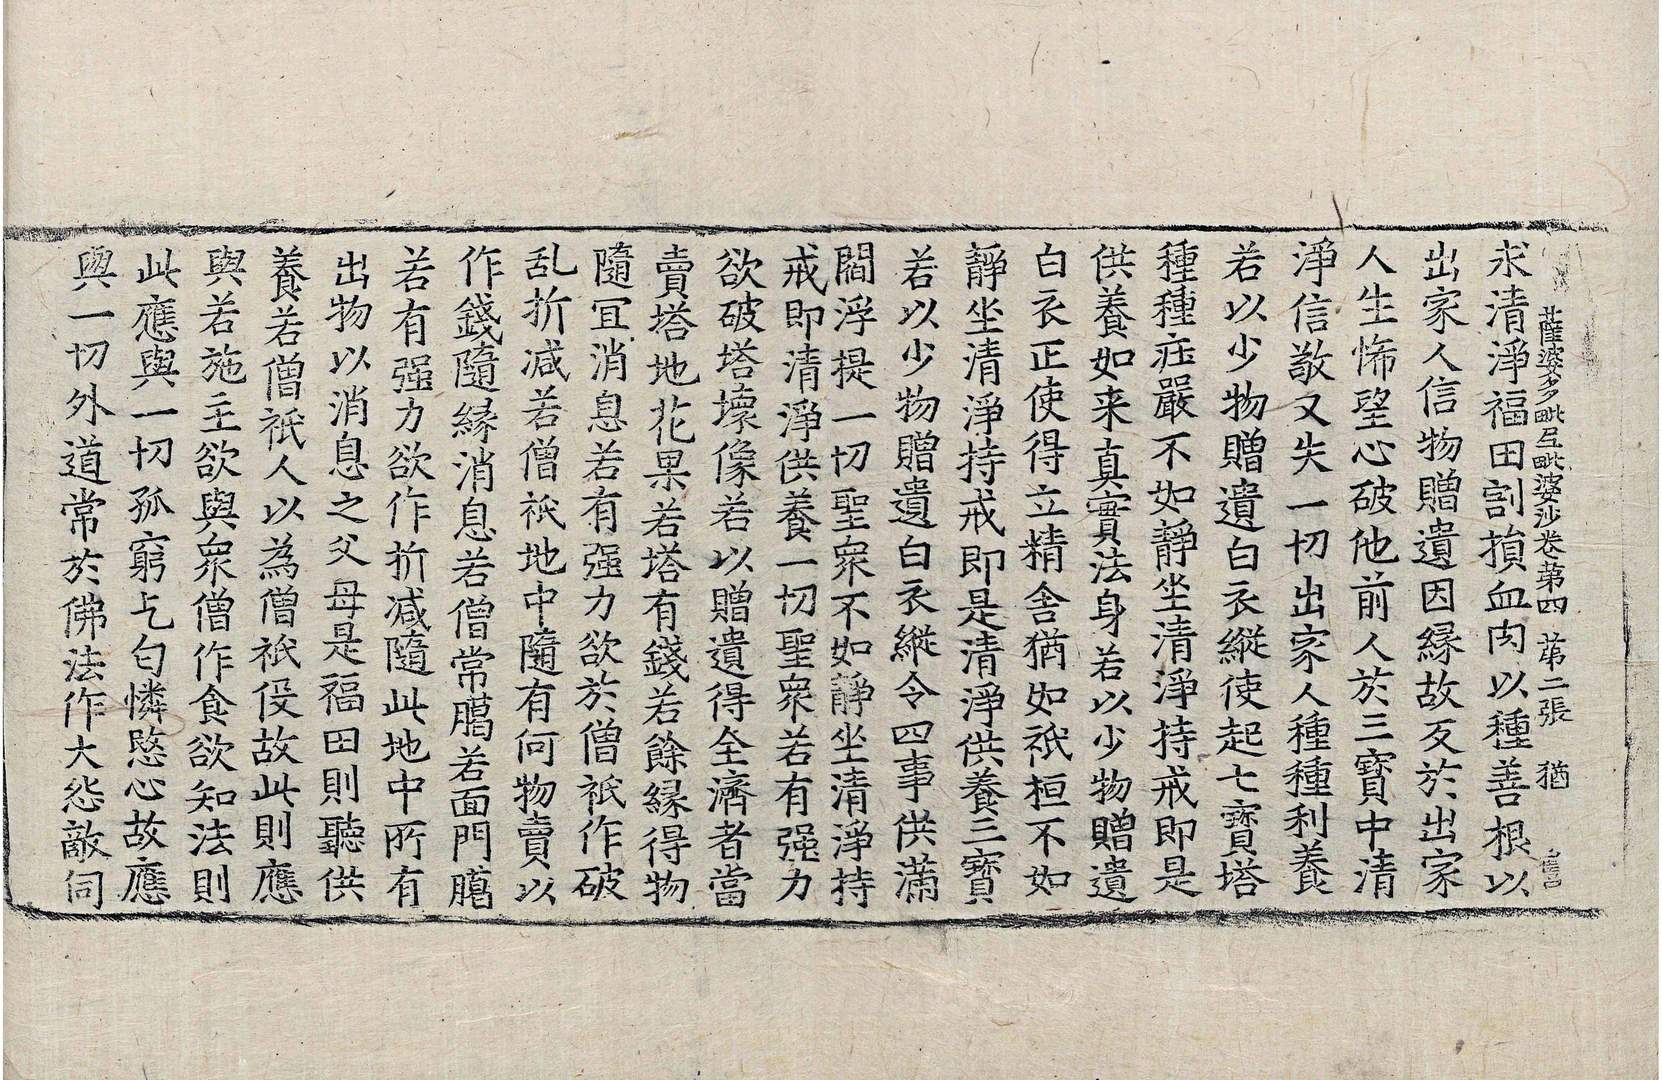 薩婆多毗尼毗婆沙卷苐四 苐二張 猶
求清淨福田割損血肉以種善根以
出家人信物贈遺因縁故反於出家
人生悕望心破他前人於三寶中清
淨信敬又失一切出家人種種利養
若以少物贈遺白衣縱使起七寶塔
種種庄嚴不如靜坐清淨持戒即是
供養如来真實法身若以少物贈遺
白衣正使得立精舍猶如祇桓不如
靜坐清淨持戒即是清淨供養三寶
若以少物贈遺白衣縱令四事供滿
閻浮提一切聖衆不如靜坐清淨持
戒即清淨供養一切聖衆若有强力
欲破塔壞像若以贈遺得全濟者當
賣塔地花果若塔有錢若餘縁得物
隨冝消息若有强力欲於僧祇作破
乱折减若僧祇地中隨有何物賣以
作錢隨縁消息若僧常臈若面門臈
若有强力欲作折减隨此地中所有
出物以消息之父母是福田則聽供
養若僧祇人以為僧祇役故此則應
與若施主欲與衆僧作食欲知法則
此應與一切孤窮乞匂憐愍心故應
與一切外道常於佛法作大怨敵伺